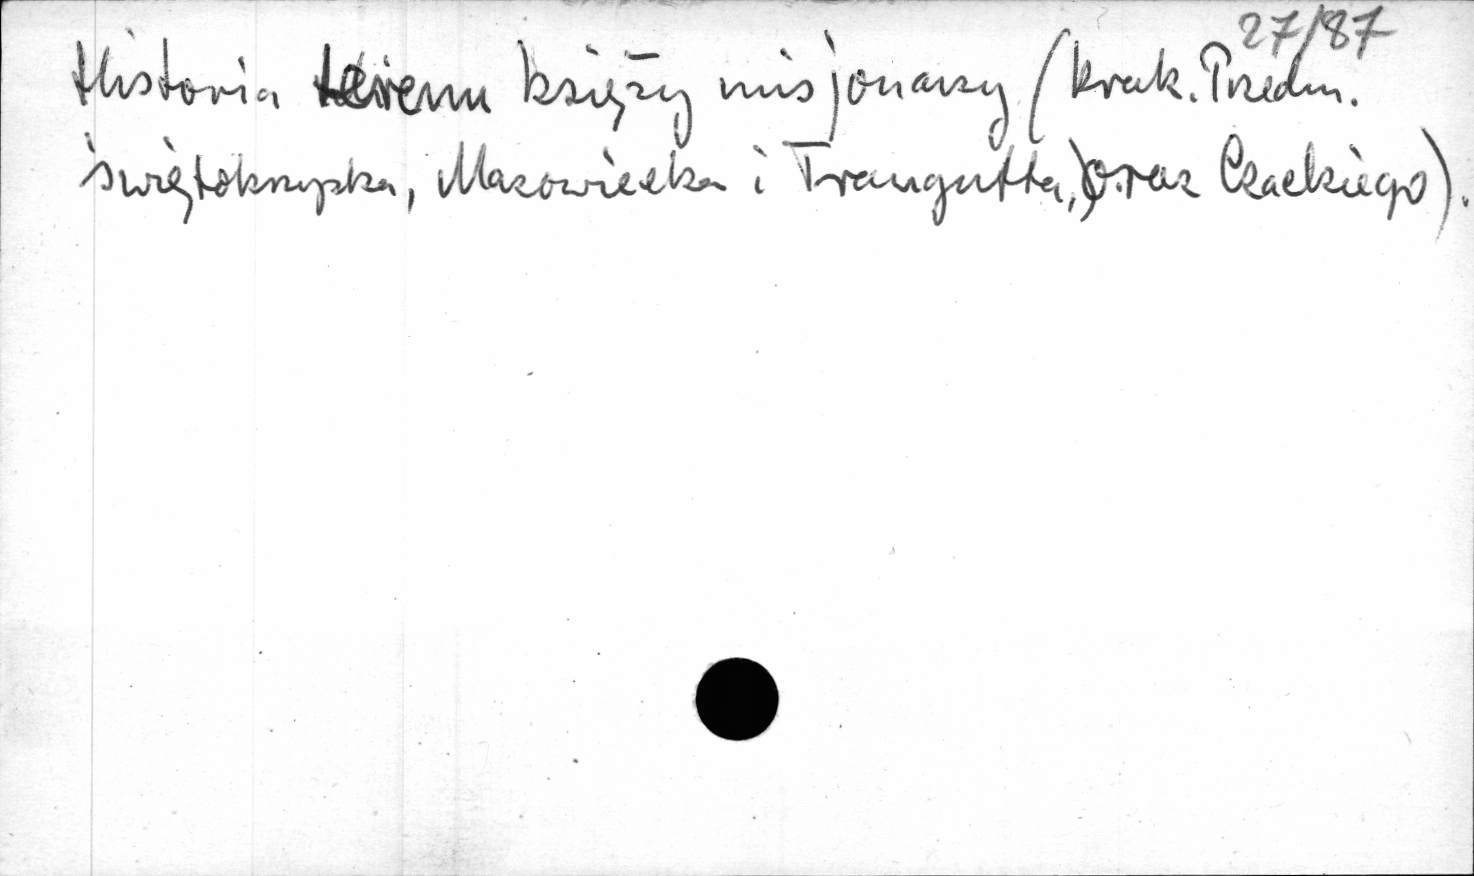 27/87
Historia terenu księży misjonarzy (Krak. Przedm.
świętokrzyska, Mazowiecka i Traugutta, oraz Czackiego).